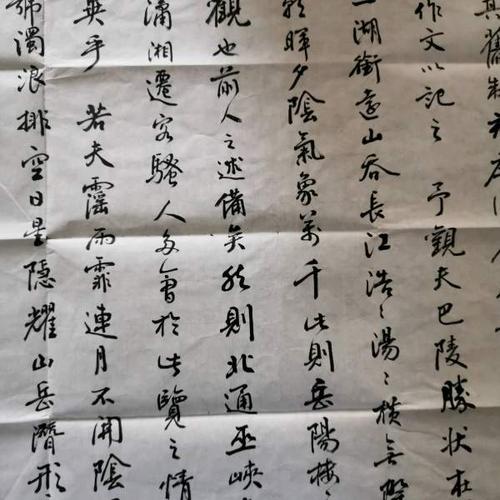 其舊制
作文以記之 予觀夫巴陵勝狀在
一湖銜遠山吞長江浩〻湯〻橫無際
暉夕陰氣象萬千此則岳陽樓之
觀也前人之述備矣然則北通巫峽
瀟湘遷客騷人多會於此覽之情
無乎 若夫霪雨霏連月不開陰
號濁浪排空日星隱耀山岳潛形